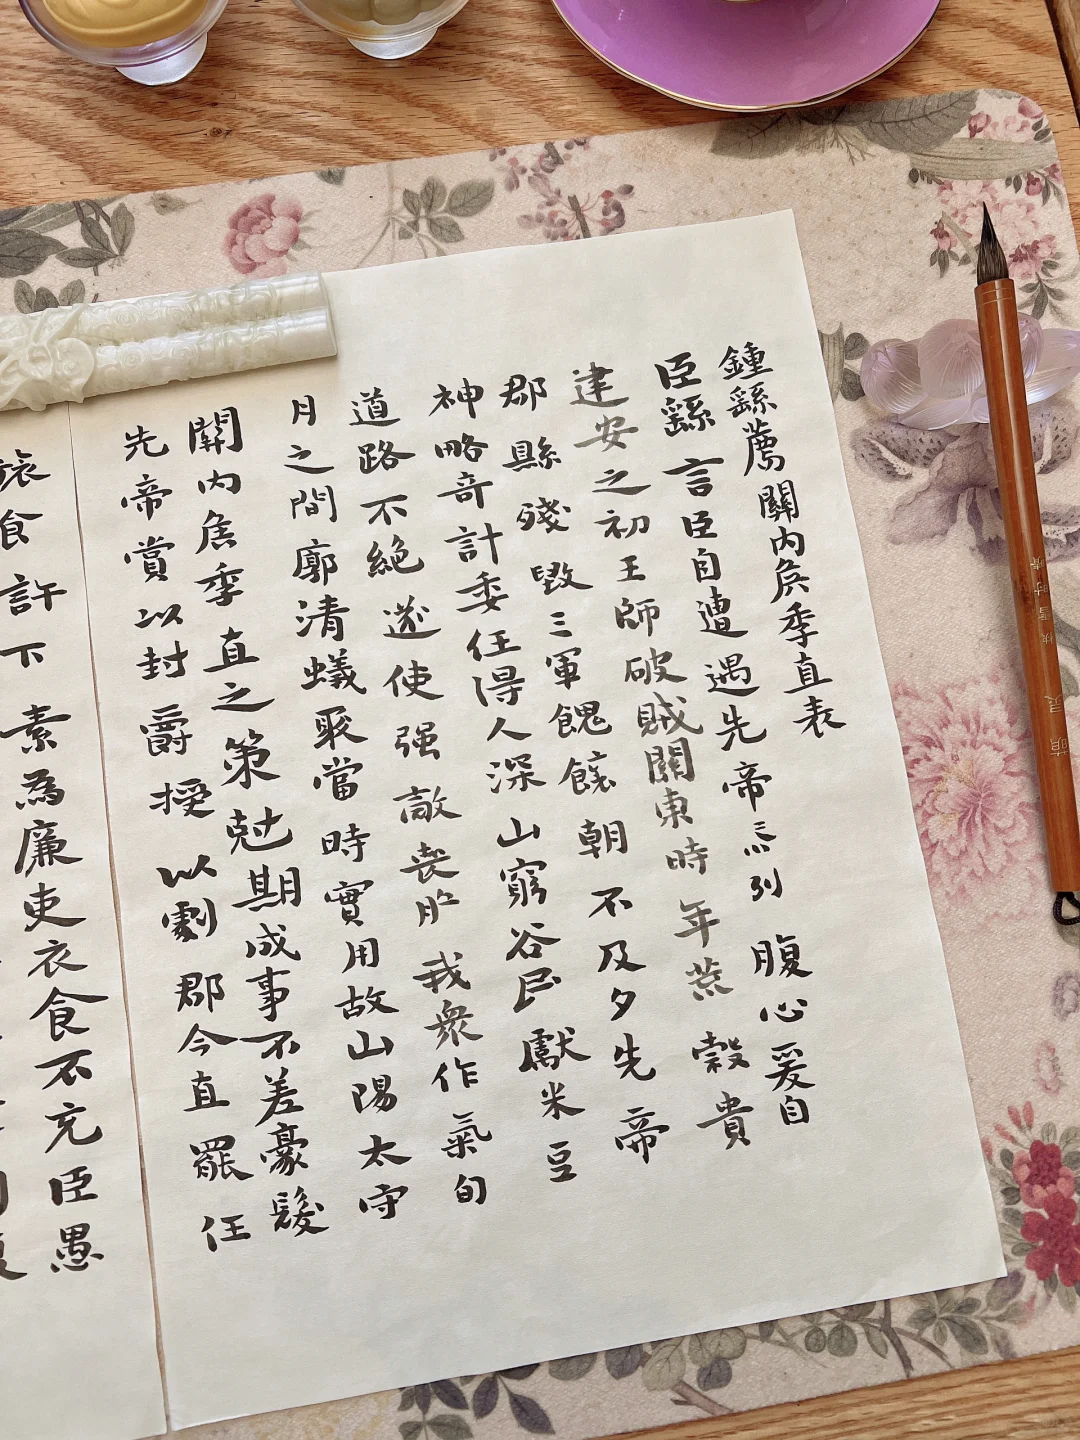 鍾繇薦關內侯季直表
臣繇言臣自遭遇先帝忝列腹心爰自
建安之初王師破賊關東時年荒穀貴
郡縣殘毀三軍餽饟朝不及夕先帝
神略奇計委任得人深山窮谷民獻米豆
道路不絕遂使强敵喪膽我衆作氣旬
月之間廓清蟻聚當時實用故山陽太守
關內侯季直之策尅期成事不差豪髮
先帝賞以封爵授以劇郡今直罷任
旅食許下素為廉吏衣食不充臣愚